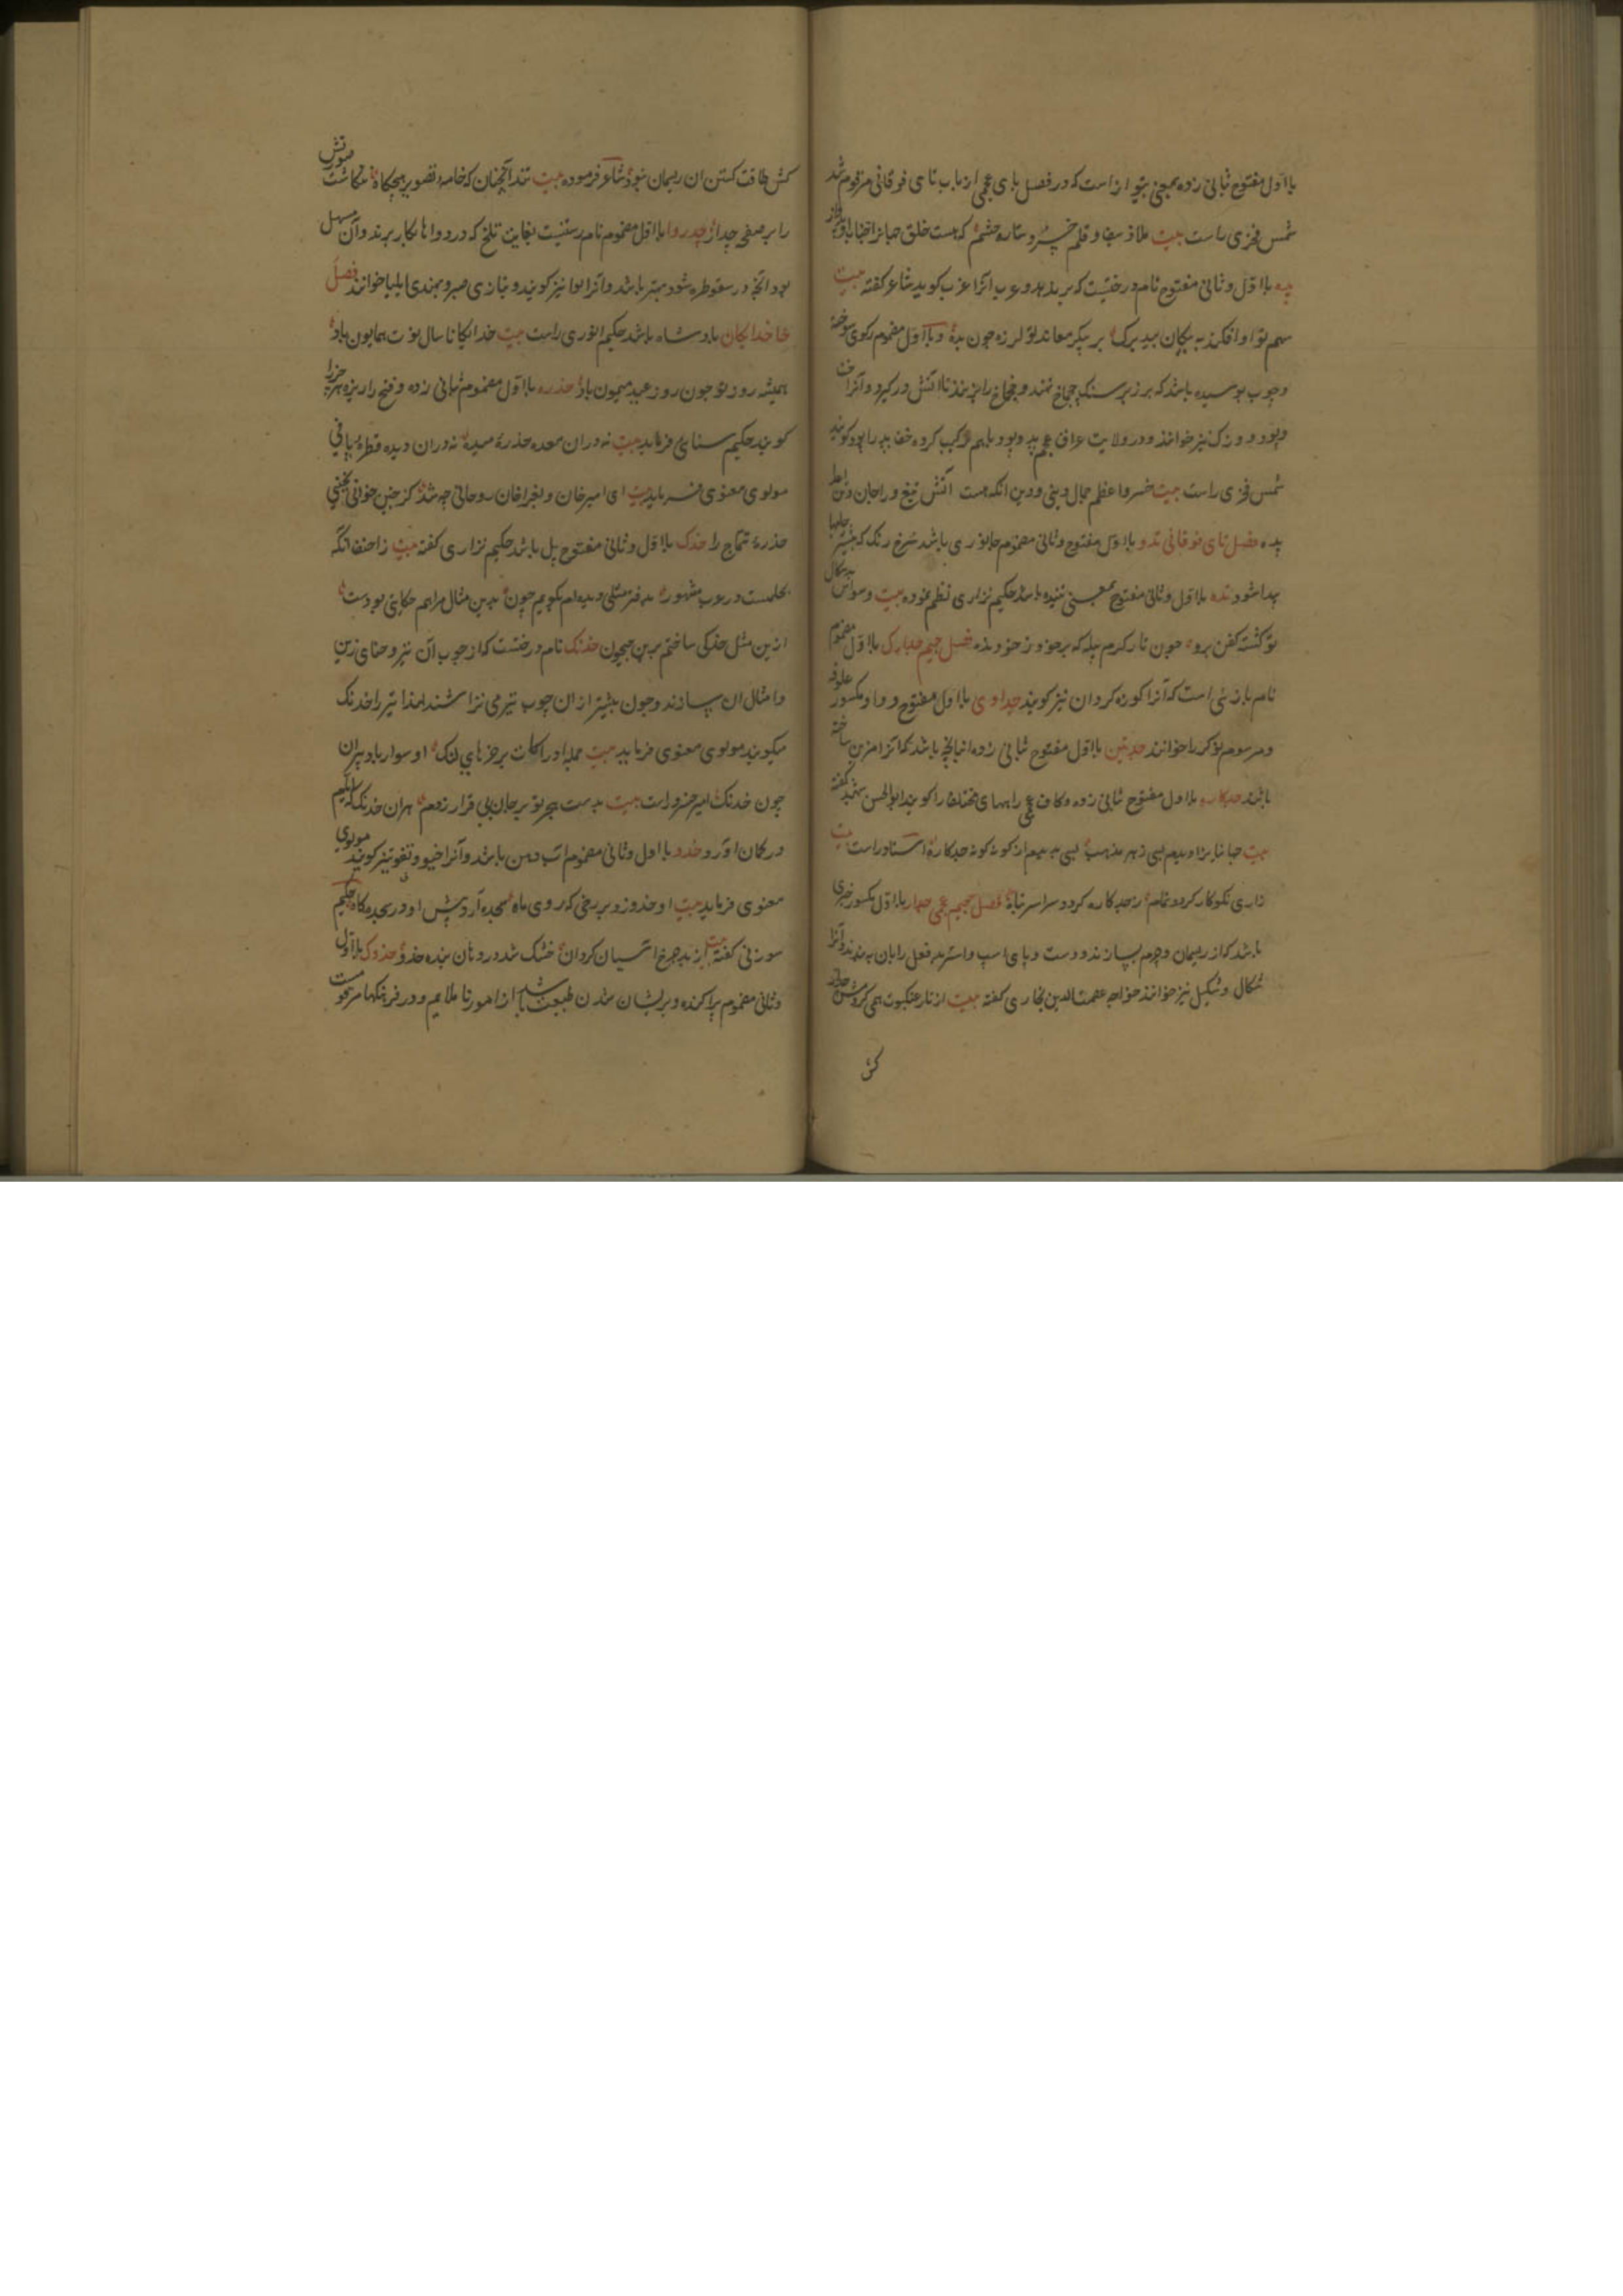 با اول مفتوح ثبانی زده بمعنی بتواز است که در فصل بای عجمی از باب تای فوقانی مرقوم شد
شمس فخری راست بیت ملاذ سیف و قلم خسرو ستاره حشم که هست خلق جهانرا
پده با اول و ثانی مفتوح نام درختیست که بر ندهد و عرب آنرا غرب کویند شاعر کفته بیت
سهم تو او افکند به پیکان بید برک بر پیکر معاند تو لرزه چون پده و با اول مضموم رکوی سوخته
و چوب پوسیده باشد که بر زبر سنک چخماخ نهند و چخماخ را بزنند تا آتش در کیرد و آنرا خف
و پود و وزک نیز خوانند و در ولایت عراق عجم پد و پود باهم ترکیب کرده خف پده را پود کویند
شمس فخری راست بیت خسرو اعظم جمال دنیی و دین آنکه هست آتش تیغ ورا جان
پده فصل تای فوقانی تدو با اول مفتوح و ثانی مضموم جانوری باشد سرخ رنک که بیشتر
پیدا شود تده با اول و ثانی مفتوح بمعنی تنیده باشد حکیم نزاری نظم نموده بیت وسواس
تو کشته کفن برو چون تار کرم پیله که بر خود ز خود تده فصل جیم جدارک با اول مضموم
نام بازیی است که آنرا کوزه کردان نیز کویند جداوی با اول مفتوح و واو مکسور علوفه
و مرسوم نوکر را خوانند با اول مفتوح ثبانی زده انبانچه باشد که آنرا از ساخته
باشند جدکاره با اول مفتوح ثبانی زده و کاف عجمی رایهای مختلف را کویند ابوالحسن شهید کفته
بیت جهانیانرا دیدم بسی ز هر مذهب بسی بدیدم از کونه کونه جدکاره استاد راست بیت
داری نکو کار کردد تمام ز جدکاره کردد سراسر تباه فصل جیم عجمی چدار با اول مکسور چیزی
باشد که از ریسمان و چرم بسازند و دست و پای اسپ و استر بد فعل را بآن به بندند و آنرا
شکال و شکیل نیز خوانند خواجه عصمت الدین بخاری کفته بیت از تار عنکبوت همی کردمش چدار
کش
کش طاقت کستن آن ریسمان نبود شاعر فرموده بیت تند آنچنان که خامه تصویر هیچکاه نکاشت صورتش
را بر صفحه چدار چدروا با اول مضموم نام رستنیست بغایت تلخ که در دواها بکار برند و آن مسهل
بود آنچه در سقوطره شود بهتر باشد و آنرا الوا نیز کویند و بتازی صبر و بهندی ایلیا خوانند فصل
خا خدایکان پادشاه باشد حکیم انوری راست بیت خدایکانا سال نوت همایون باد
همیشه روز تو چون روز عید میمون باد خدره با اول مضموم ثبانی زده و فتح را ریزه هر چیز را
کویند حکیم سنائی فرماید بیت نه در آن معده خدرهٔ میده نه در آن دیده قطرهٔ پاقی
مولوی معنوی فرماید بیت ای امیرخان و بغراخان روحانی چه شد کز چنین خوانی
خدرهٔ تتماج را خدک با اول و ثانی مفتوح پل باشد حکیم نزاری کفته بیت ز احنف آنکه
بحلمست در عرب مشهور بدفتر مثلی دیده ام بکویم چون بدین مثال مرا هم حکایتی بودست
ازین مثل خدکی ساختم برین جیحون خدنک نام درختیست که از چوب آن تیر و حنای زین
و امثال آن بسازند و چون بیشتر از آن چوب تیر می تراشند لهذا تیر را خدنک
میکویند مولوی معنوی فرماید بیت جمله ادراکات بر خرهای لنک او سوار باد پیران
چون خدنک امیر خسرو راست بیت بدست هجر تو بر جان بی قرار زدم هر آن خدنک که
در کمان آورد خدو با اول و ثانی مضموم آب دهن باشد و آنرا خیو و تفو نیز کویند مولوی
معنوی فرماید بیت او خدو زد بر رخی که روی ماه سجده آرد پیش او در سجده کاه حکیم
سوزنی کفته بیت از بد چرخ آسیان کردان خشک شد در دهان بنده خدو خدوک با اول
و ثانی مضموم پراکنده و پریشان شدن طبیعت باشد از امور ناملایم و در فرهنکها مرقومست